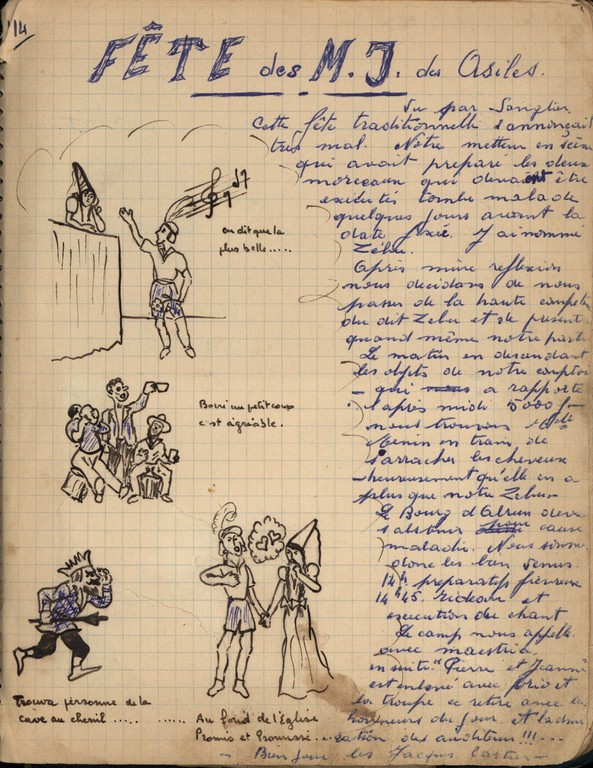 14
FÊTE des M.J. des Asiles.
Vu par Sanglier
Cette fête traditionnelle s'annonçait
très mal. Notre metteur en scène
qui avait préparé les deux
morceaux qui devaient être
exécutés tombe malade
quelques jours avant la
date fixée. J'ai nommé
Zébu.
Après mûre reflexion
nous décidons de nous
passer de la haute compéte
du dit Zébu et de présent
quand même notre partie
Le matin en descendant
les objets de notre comptoi
- qui a rapporté
l'après midi 5000 f -
nous trouvons Melle
Menin en train de
s'arracher les cheveux
- heureusement qu'elle en a
plus que notre Zébu -
Le Bourg d'Abrun devra
s'abstenir cause
maladie. Nous sommes
donc les bien venus.
14h préparatifs fiévreux
14h45. Rideau et
exécution du chant
Le camp nous appelle
avec maestria.
ensuite "Pierre et Jeanne
est enlevé avec brio et
la troupe se retire avec les
honneurs du jour et l'admi
ration des auditeurs !!! -
- Bien joué les Jacques Cartier -
on dit que la
plus belle.....
Boire un petit coup
c'est agréable.
Trouva personne de la
cave au chenil ..... ......
Au fond de l'Église
Promis et Promise...